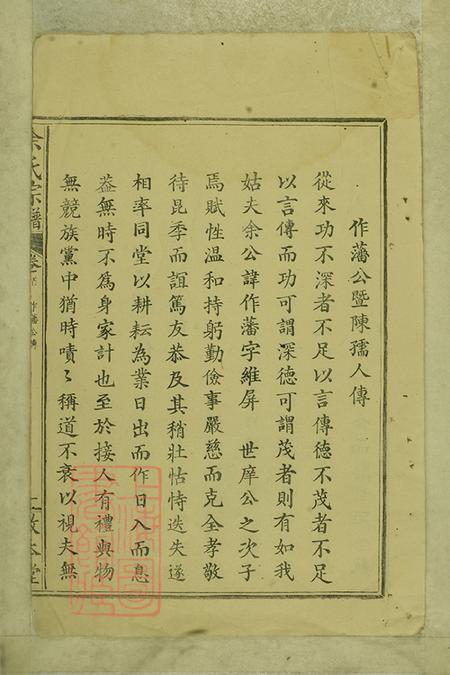 作藩公暨陳孺人傳
從來功不深者不足以言傳德不茂者不足
以言傳而功可謂深德可謂茂者則有如我
姑夫余公諱作藩字維屏 世庠公之次子
焉賦性溫和持躬勤儉事嚴慈而克全孝敬
待昆季而誼篤友恭及其稍壯怙恃迭失遂
相率同堂以耕耘為業日出而作日入而息
葢無時不爲身家計也至於接人有禮與物
無競族黨中猶時嘖〻稱道不衰以視夫無
余氏宗譜
作藩公傳